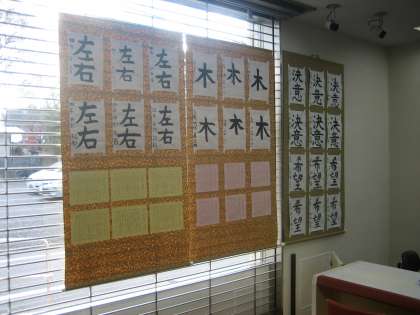 左右 左右 左右
左右 左右 左右
木 木 木
木 木 木
決意 決意 決意
決意 決意 決意
希望 希望 希望
希望 希望 希望